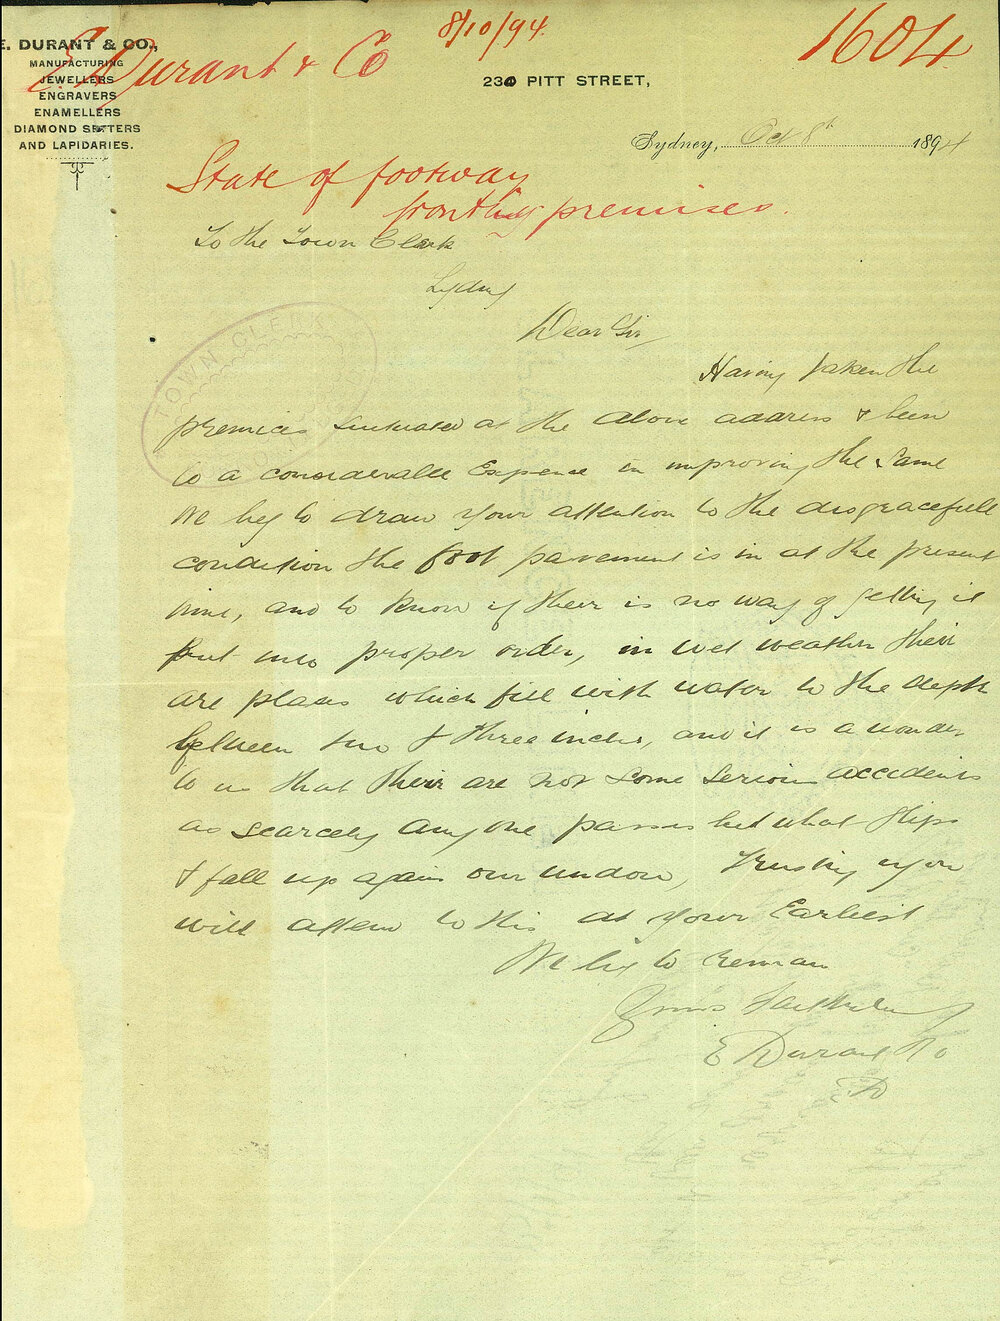 8/10/94.
1604
E. DURANT & CO.,
MANUFACTURING
JEWELLERS
ENGRAVERS
ENAMELLERS
DIAMOND SETTERS
AND LAPIDARIES.
E. Durant & Co
230 PITT STREET,
Sydney, Oct 8th 1894
State of footway
fronting premises.
To the Town Clerk
Sydney
Dear Sir
TOWN CLE
Having taken the
premices situated at the above address & been
to a considerable Expence in improving the same
We beg to draw your attention to the disgracefull
condition the foot pavement is in at the present
time, and to know if their is no way of getting it
put into proper order, in wet weather their
are places which fill with water to the depth
between two & three inches, and it is a wonder
to us that their are not some serious accidents
as scarcely any one passes but what slips
& fall up again our window, Trusting you
will attend to this at your Earliest
We beg to remain
Yours faithfully
E Durant & Co